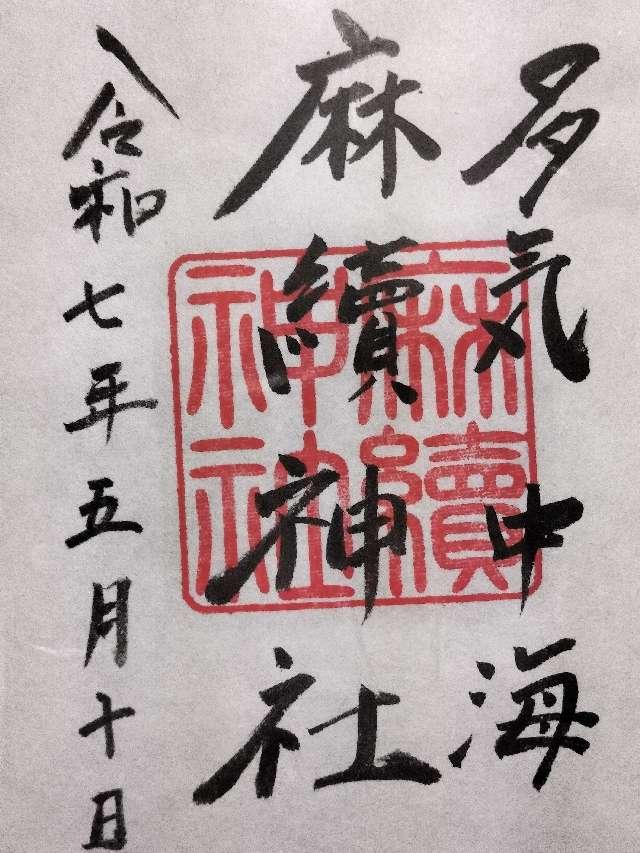 多気中海
麻續神社
令和七年五月十日
麻續
神社